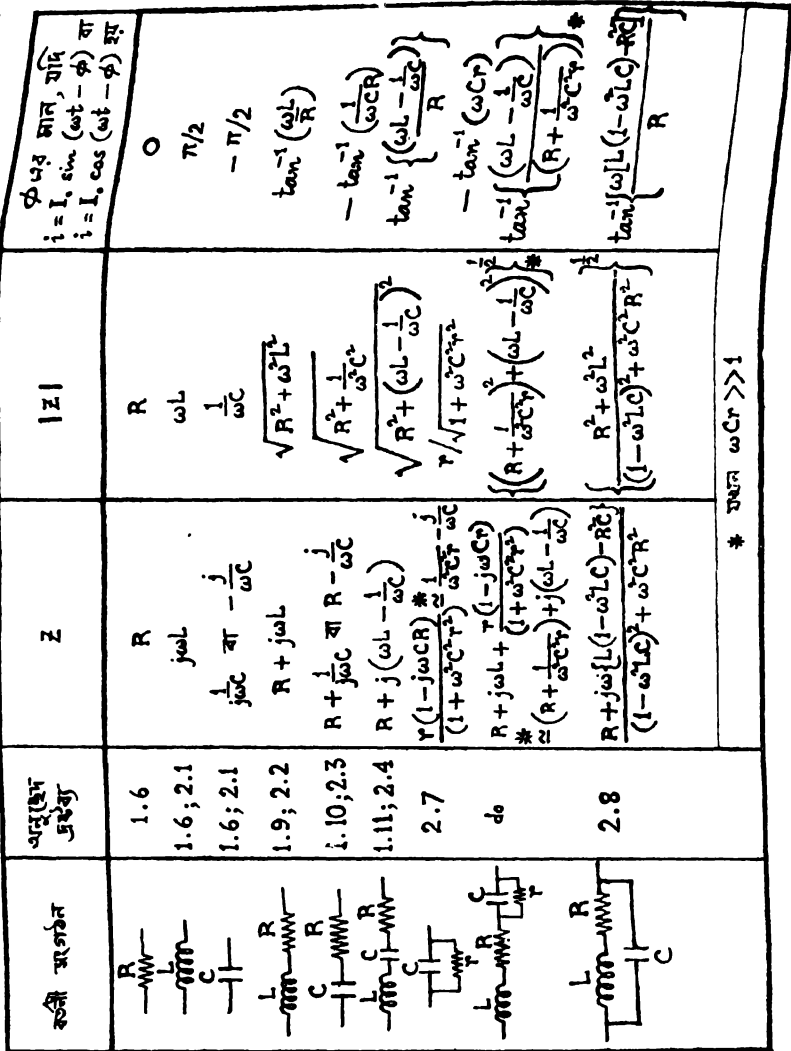 বর্তনী সংগঠন | অনুচ্ছেদ দ্রষ্টব্য | Z | |Z| | φ এর মান, যদি i = I₀ sin (ωt − φ) বা i = I₀ cos (ωt − φ) হয়
R | 1.6 | R | R | 0
L | 1.6; 2.1 | jωL | ωL | π/2
C | 1.6; 2.1 | 1/jωC বা −j/ωC | 1/ωC | −π/2
L R | 1.9; 2.2 | R + jωL | √(R² + ω²L²) | tan⁻¹(ωL/R)
C R | 1.10; 2.3 | R + 1/jωC বা R − j/ωC | √(R² + 1/ω²C²) | −tan⁻¹(1/ωCR)
L C R | 1.11; 2.4 | R + j(ωL − 1/ωC) | √(R² + (ωL − 1/ωC)²) | tan⁻¹{(ωL − 1/ωC)/R}
C r | 2.7 | r(1 − jωCR)/(1 + ω²C²r²) *≃ 1/ω²C²r − j/ωC | r/√(1 + ω²C²r²) | −tan⁻¹(ωCr)
L R C r | do | R + jωL + r(1 − jωCr)/(1 + ω²C²r²) *≃ (R + 1/ω²C²r) + j(ωL − 1/ωC) | {(R + 1/ω²C²r)² + (ωL − 1/ωC)²}^½ * | tan⁻¹{(ωL − 1/ωC)/(R + 1/ω²C²r)} *
L R C | 2.8 | R + jω{L(1 − ω²LC) − R²C}/(1 − ω²LC)² + ω²C²R² | {R² + ω²L²/(1 − ω²LC)² + ω²C²R²}^½ | tan⁻¹{ω[L(1 − ω²LC) − R²C]/R}
* যখন ωCr >> 1